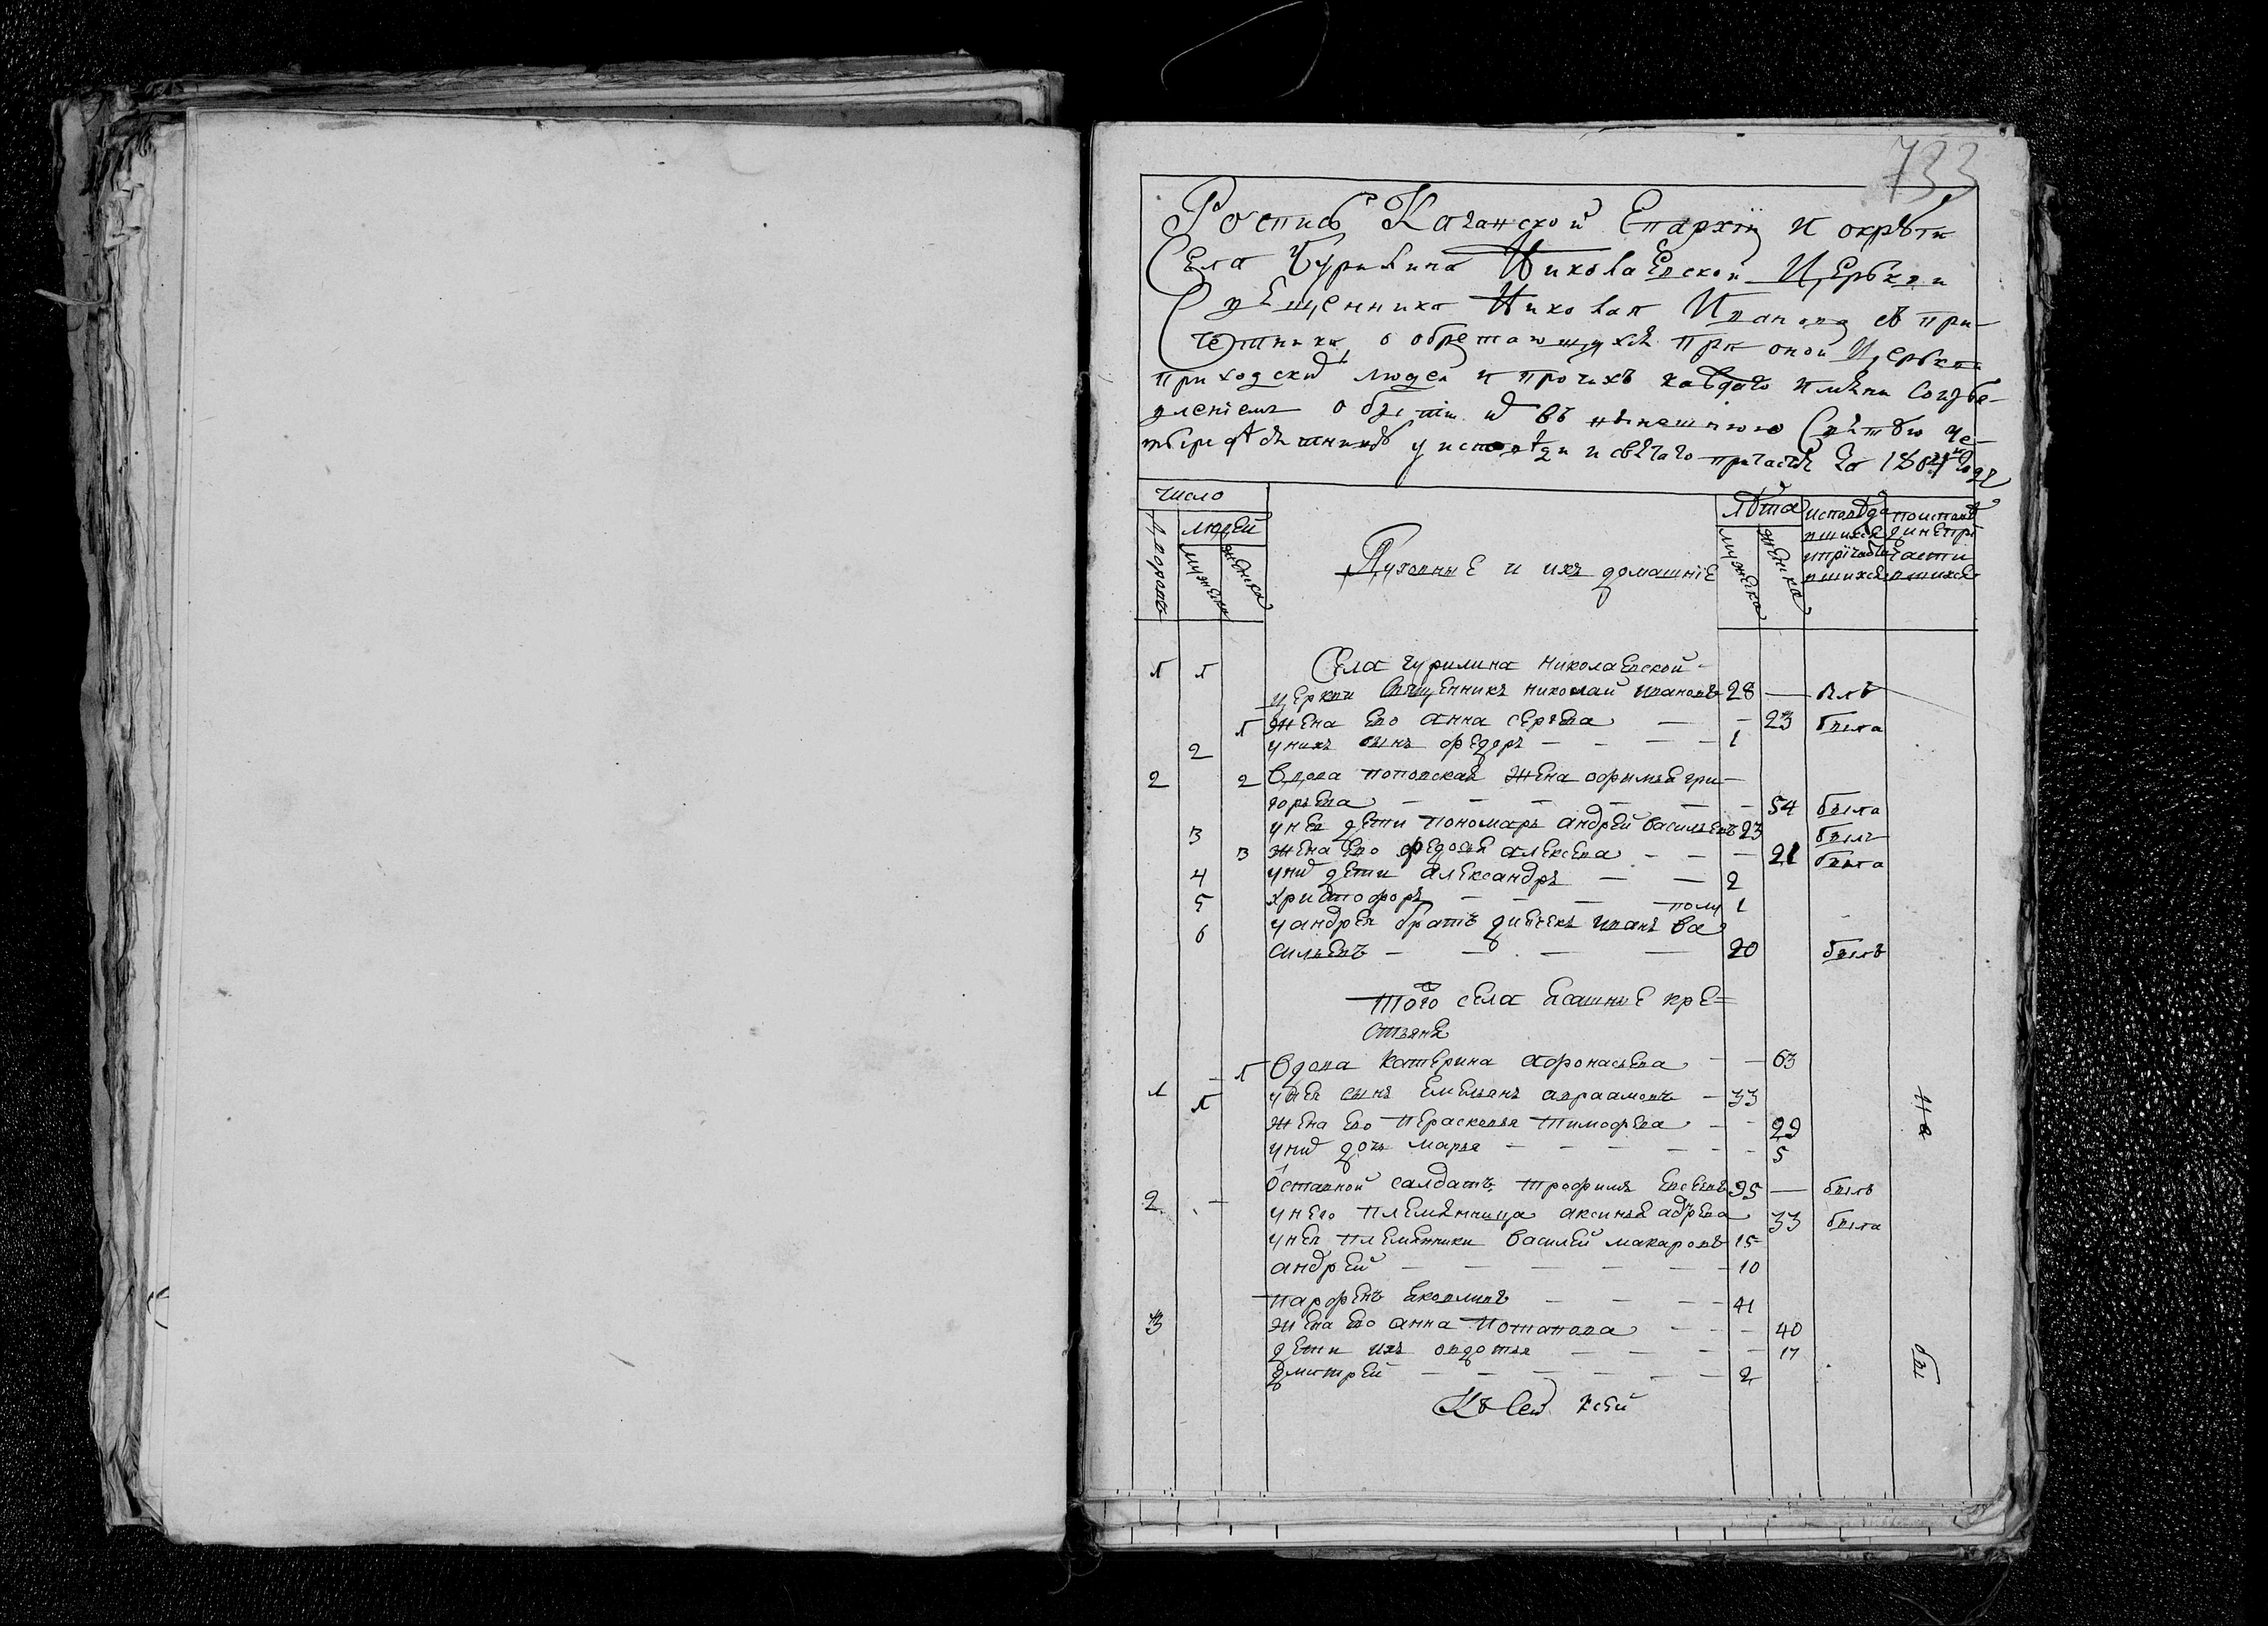 733
Роспись Казанской Епархіи и округи
Села Чурилина Николаевской Церькви
Священника Николая Иванова съ при-
четники о обретающихся при оной Церькви
приходскихъ людей и прочихъ каждаго имяни созъве-
денiемъ о бытiи ихъ въ нынешнюю Святую че-
тыредесятницу у исповѣди и святаго причастiя за
число
людей
лѣта
Дворовъ
мужеска
женска
Духовные и их домашнiе
мужеска
женска
исповѣда
вшихся
и прiчасти
вшихся
по исповѣ
ди не при
части
вшихся
1 1 Села чурилина николаевской
церкви священникъ николай ивановъ 28 — былъ
1 жена ево анна сергева — — 23 была
2 у нихъ сынъ федоръ — — — 1
2 2 Вдова поповская жена офимья гри-
горьева — — — — — — 54 была
3 у нея дети пономарь андрей васильевъ 23 былъ
3 жена ево федосья алексева — — — 21 была
4 у них дети александръ — — 2
5 христофоръ — — — полу 1
6 у андрея братъ дьячекъ иванъ ва
сильевъ — — — — 20 былъ
того села ясашные кре=
стьяня
1 Вдова катерина афонасьева — — 63
1 1 у нея сынъ емельянъ авраамовъ — 33
жена ево перасковья тимофева — — 29
у них дочь марья — — — — — — 5
2 оставной салдатъ трофимъ евсевьевъ 95 — былъ
у него племянница аксинья адрева 33 была
у нея племянники василей макаровъ 15
андрей — — — — — — 10
3 парфенъ яковлевъ — — — 41
жена ево анна потапова — — — 40
дети ихъ овдотья — — — — 17
дмитрей — — — — — — 2
На